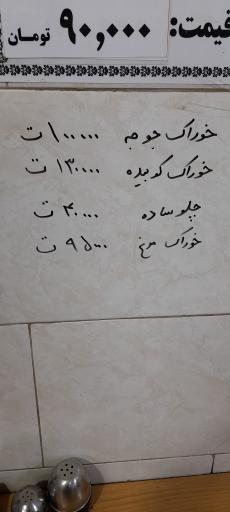 قیمت: ۹۰,۰۰۰ تومان
خوراک جوجه ۱۰۰۰۰۰ ت
خوراک کوبیده ۱۳۰۰۰۰ ت
چلو ساده ۴۰۰۰۰ ت
خوراک مرغ ۹۵۰۰۰ ت